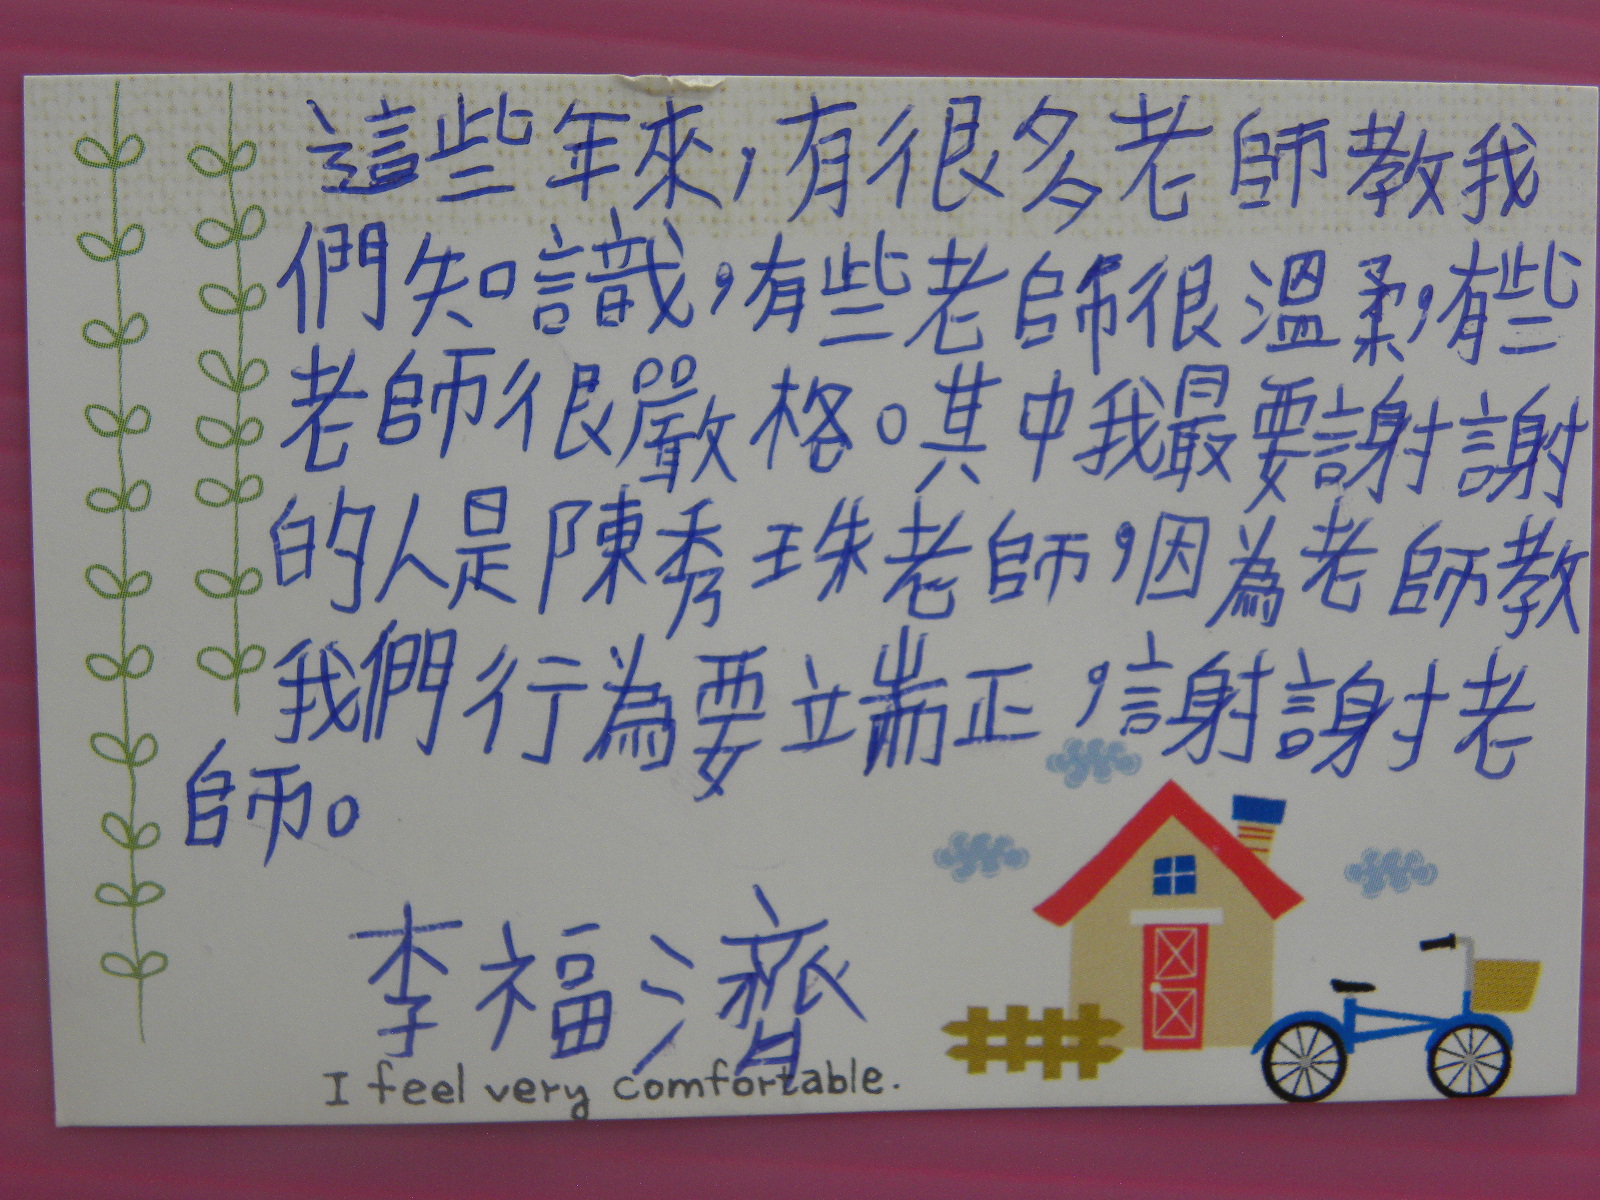 這些年來，有很多老師教我
們知識，有些老師很溫柔，有些
老師很嚴格。其中我最要謝謝
的人是陳秀珠老師，因為老師教
我們行為要端正，謝謝老
師。
李福濟
I feel very comfortable.